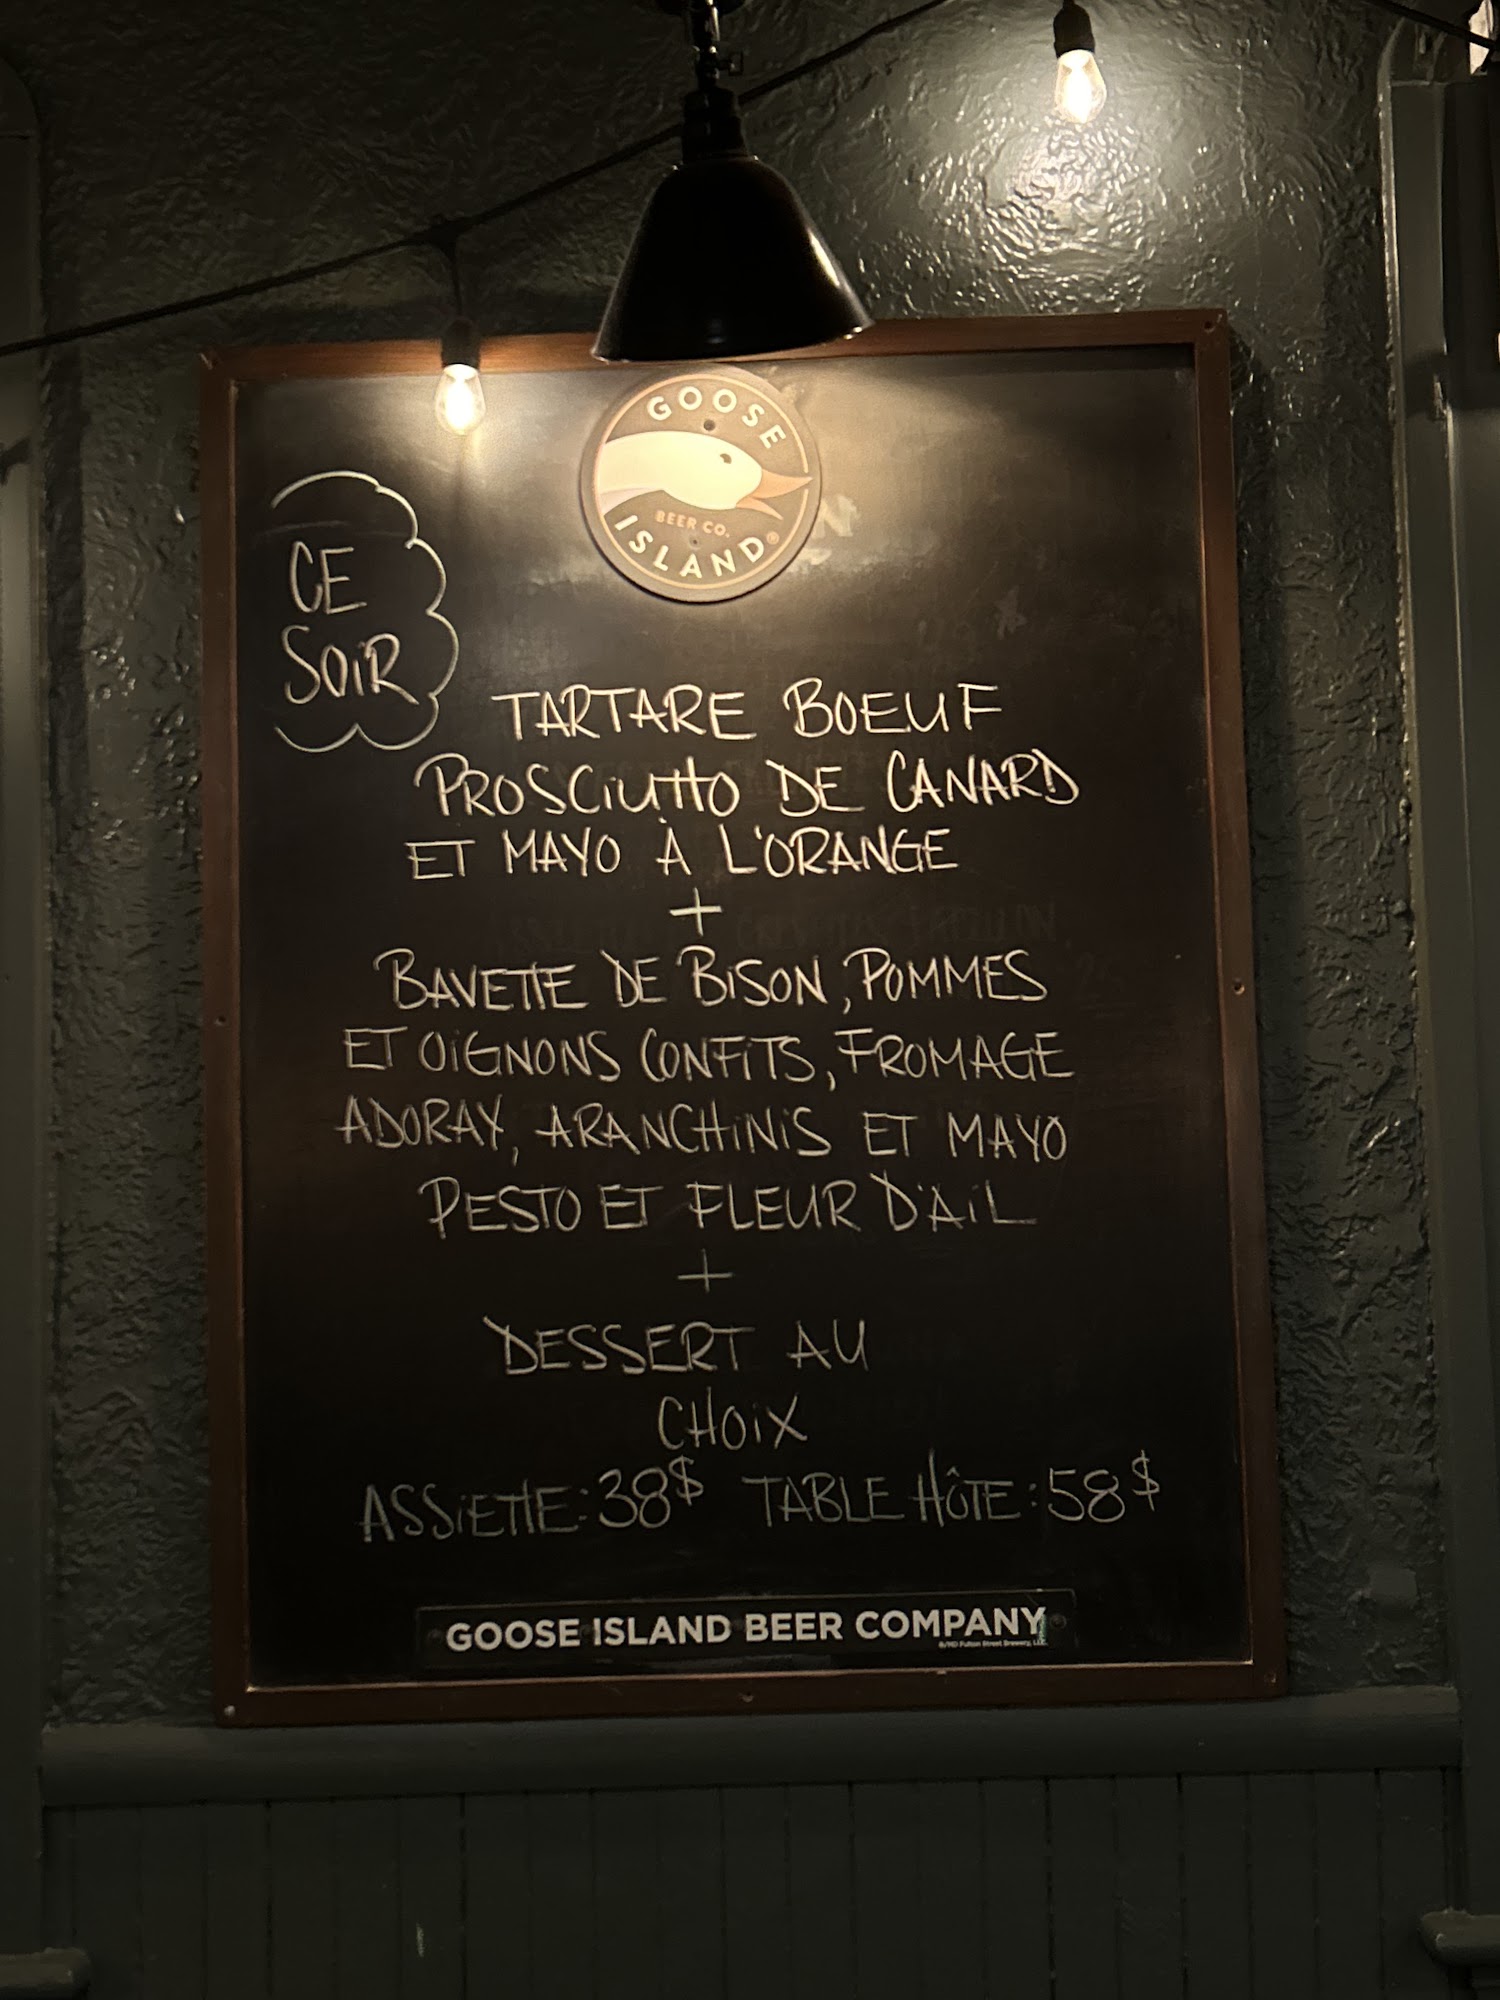 GOOSE
BEER CO.
ISLAND®
CE
SOIR
TARTARE BOEUF
PROSCIUTTO DE CANARD
ET MAYO À L'ORANGE
+
BAVETTE DE BISON, POMMES
ET OIGNONS CONFITS, FROMAGE
ADORAY, ARANCHINIS ET MAYO
PESTO ET FLEUR D'AIL
+
DESSERT AU
CHOIX
ASSIETTE: 38$ TABLE HÔTE: 58$
GOOSE ISLAND BEER COMPANY